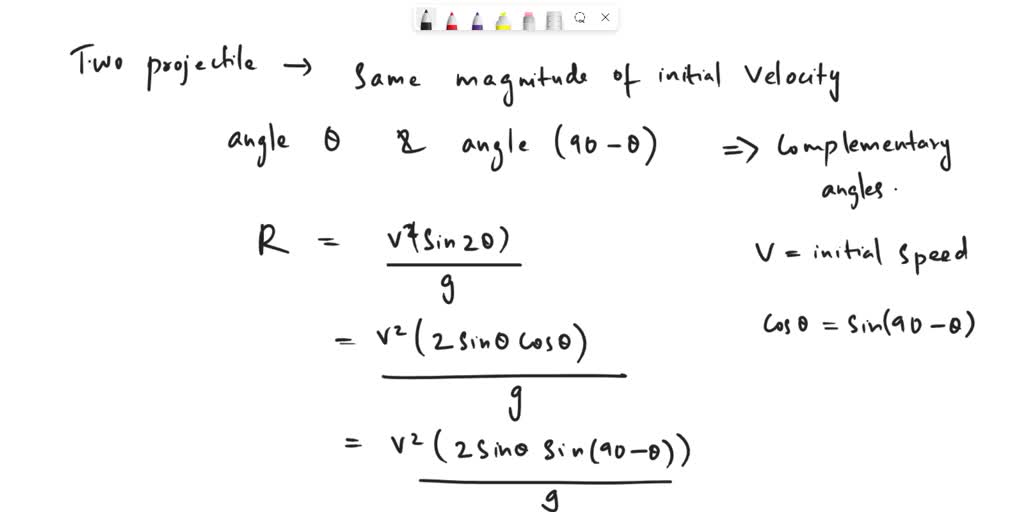 Two projectile → Same magnitude of initial velocity
angle θ & angle (90 - θ) => Complementary angles.
R = v²(sin2θ) / g
V = initial speed
= v²(2 sinθ cosθ) / g
Cosθ = sin(90-θ)
= v²(2 sinθ sin(90-θ)) / g